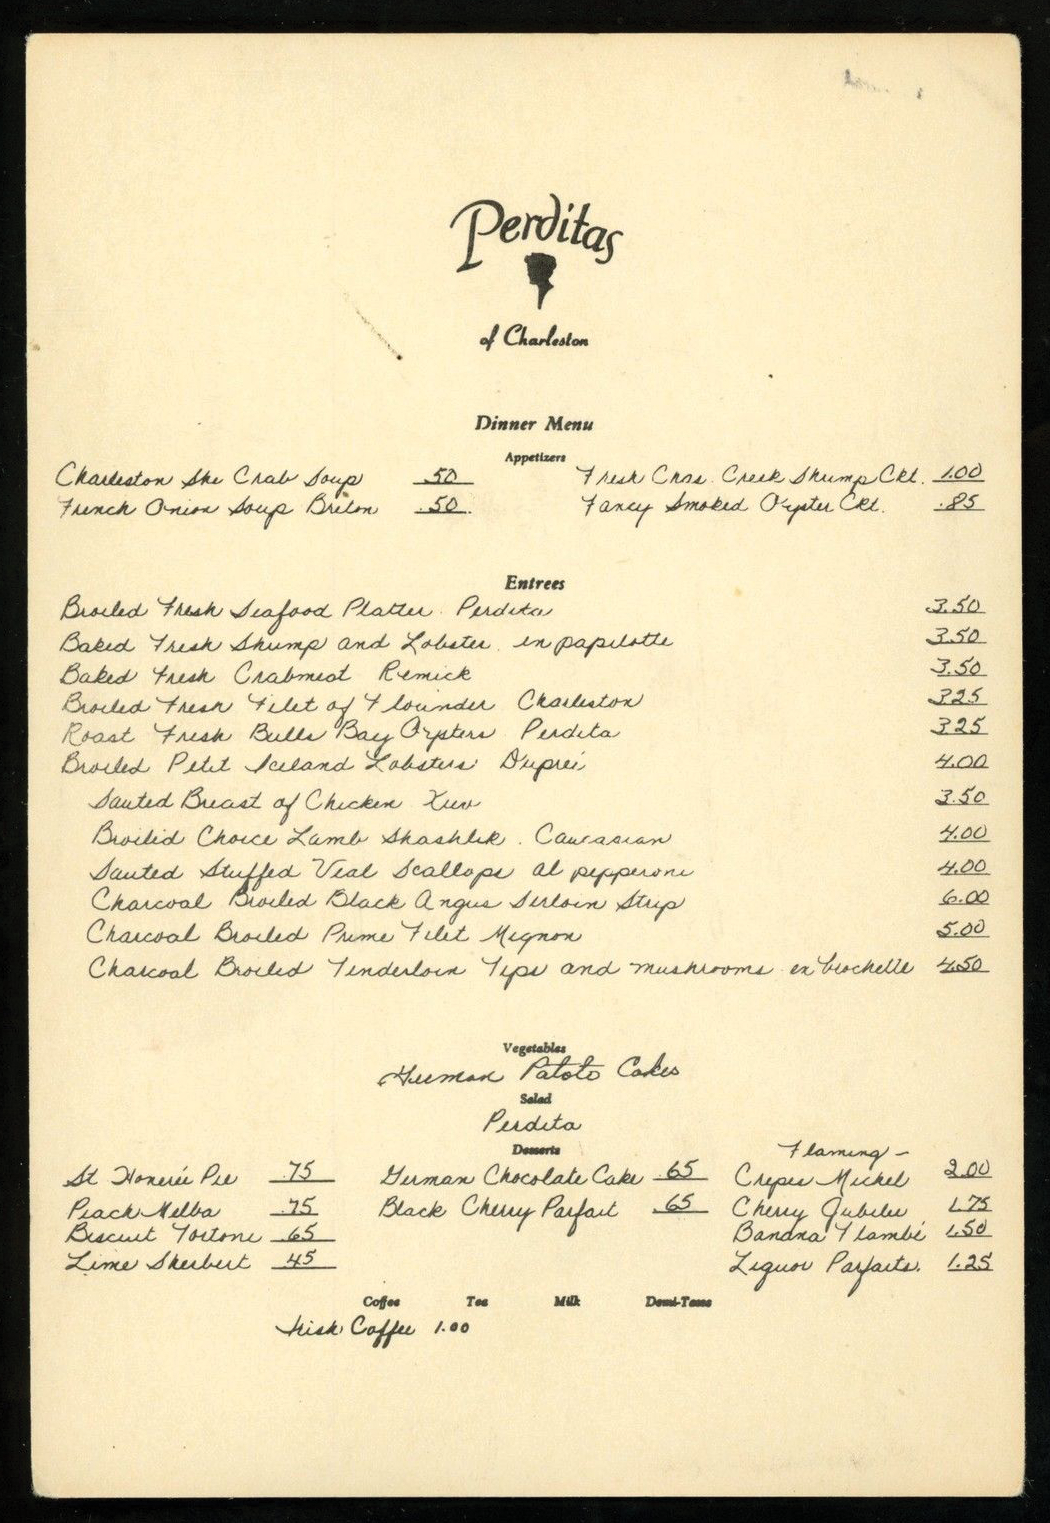 Perditas
of Charleston
Dinner Menu
Appetizers
Charleston She Crab Soup .50
Fresh Chas. Creek Shrimp Ckt. 1.00
French Onion Soup Briton .50
Fancy Smoked Oyster Ckt. .85
Entrees
Broiled Fresh Seafood Platter Perdita 3.50
Baked Fresh Shrimp and Lobster en papilotte 3.50
Baked Fresh Crabmeat Remick 3.50
Broiled Fresh Filet of Flounder Charleston 3.25
Roast Fresh Bulls Bay Oysters Perdita 3.25
Broiled Petit Iceland Lobsters Dupreé 4.00
Sauted Breast of Chicken 3.50
Broiled Choice Lamb Shashlik Caucasian 4.00
Sauted Stuffed Veal Scallops al pepperoni 4.00
Charcoal Broiled Black Angus Serloin Strip 6.00
Charcoal Broiled Prime Filet Mignon 5.00
Charcoal Broiled Tenderloin Tips and mushrooms en brochette 4.50
Vegetables
German Patoto Cakes
Salad
Perdita
Desserts
St Honereé Pie .75
Peach Melba .75
Biscuit Tortoni .65
Lime Sherbert .45
German Chocolate Cake .65
Black Cherry Parfait .65
Flaming -
Crepes Michel 2.00
Cherry Jubilee 1.75
Banana Flambé 1.50
Liquor Parfaits. 1.25
Coffee Tea Milk Demi-Tasse
Irish Coffee 1.00